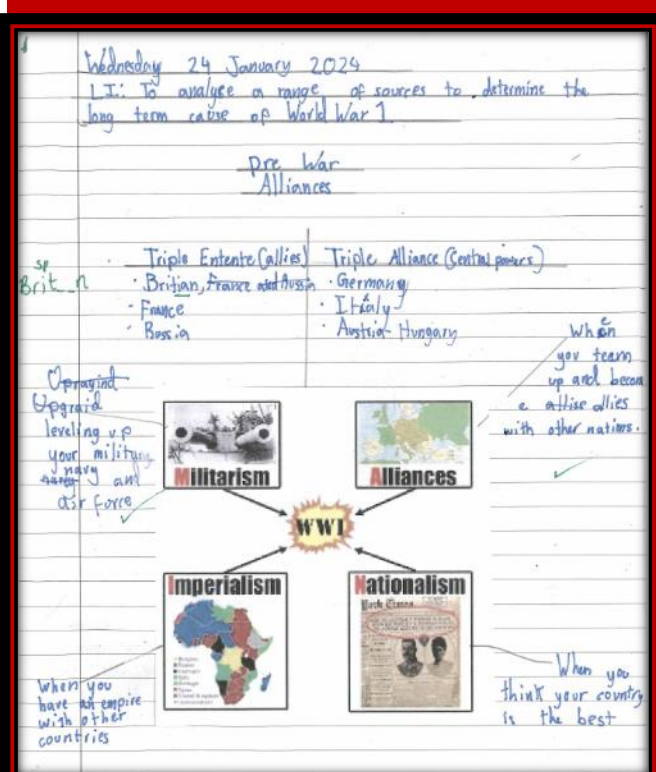 Wednesday 24 January 2024
L.I.: To analyse a range of sources to determine the
long term cause of World War 1.
Pre War
Alliances
Triple Entente (allies)
· Britian, France and Russia
· France
· Russia
Triple Alliance (Central powers)
· Germany
· Italy
· Austria-Hungary
sp
Brit_n
Upgraid
leveling up
your military
navy and
air force
When
you team
up and becom
e allise allies
with other nations.
Militarism
Alliances
WWI
Imperialism
Nationalism
When you
have an empire
with other
countries
When you
think your country
is the best